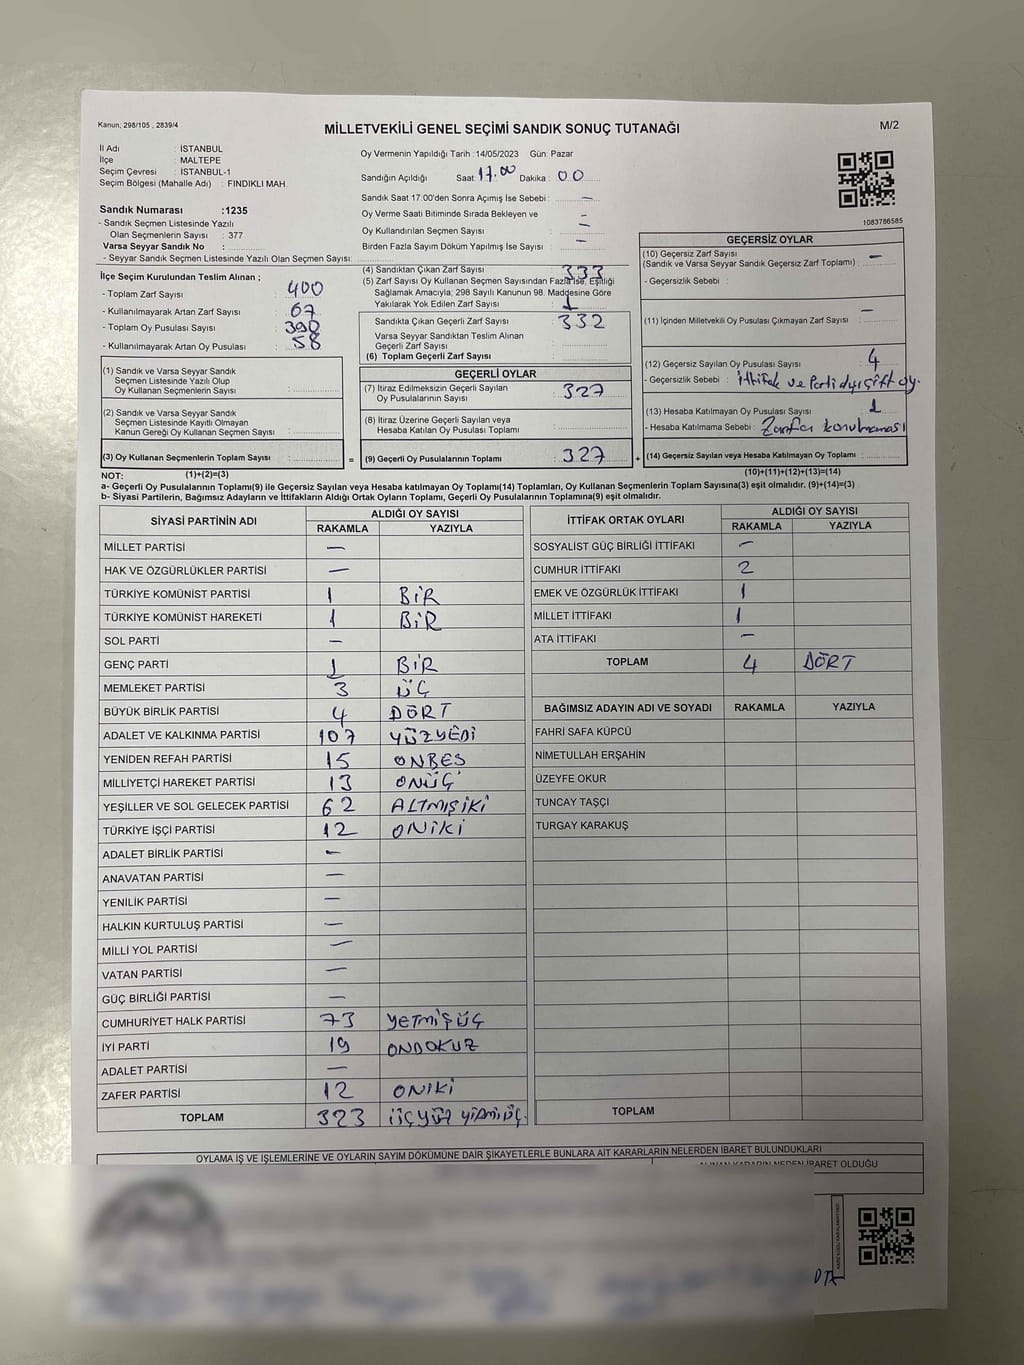 Kanun; 298/105 , 2839/4
MİLLETVEKİLİ GENEL SEÇİMİ SANDIK SONUÇ TUTANAĞI
M/2
İl Adı : İSTANBUL
İlçe : MALTEPE
Seçim Çevresi : İSTANBUL-1
Seçim Bölgesi (Mahalle Adı) : FINDIKLI MAH.
Sandık Numarası :1235
- Sandık Seçmen Listesinde Yazılı
Olan Seçmenlerin Sayısı : 377
Varsa Seyyar Sandık No :
- Seyyar Sandık Seçmen Listesinde Yazılı Olan Seçmen Sayısı:
Oy Vermenin Yapıldığı Tarih :14/05/2023 Gün: Pazar
Sandığın Açıldığı Saat: 17.00 Dakika : 00
Sandık Saat 17:00'den Sonra Açımış İse Sebebi : —
Oy Verme Saati Bitiminde Sırada Bekleyen ve -
Oy Kullandırılan Seçmen Sayısı : —
Birden Fazla Sayım Döküm Yapılmış İse Sayısı : —
1083786585
İlçe Seçim Kurulundan Teslim Alınan ;
- Toplam Zarf Sayısı : 400
- Kullanılmayarak Artan Zarf Sayısı : 67
- Toplam Oy Pusulası Sayısı : 390
- Kullanılmayarak Artan Oy Pusulası : 58
(1) Sandık ve Varsa Seyyar Sandık
Seçmen Listesinde Yazılı Olup
Oy Kullanan Seçmenlerin Sayısı :
(2) Sandık ve Varsa Seyyar Sandık
Seçmen Listesinde Kayıtlı Olmayan
Kanun Gereği Oy Kullanan Seçmen Sayısı :
(3) Oy Kullanan Seçmenlerin Toplam Sayısı :
(4) Sandıktan Çıkan Zarf Sayısı : 333
(5) Zarf Sayısı Oy Kullanan Seçmen Sayısından Fazla İse, Eşitliği
Sağlamak Amacıyla; 298 Sayılı Kanunun 98. Maddesine Göre
Yakılarak Yok Edilen Zarf Sayısı : 1
Sandıkta Çıkan Geçerli Zarf Sayısı : 332
Varsa Seyyar Sandıktan Teslim Alınan
Geçerli Zarf Sayısı :
(6) Toplam Geçerli Zarf Sayısı :
GEÇERLİ OYLAR
(7) İtiraz Edilmeksizin Geçerli Sayılan
Oy Pusulasının Sayısı : 327
(8) İtiraz Üzerine Geçerli Sayılan veya
Hesaba Katılan Oy Pusulası Toplamı :
= (9) Geçerli Oy Pusulalarının Toplamı : 327 +
GEÇERSİZ OYLAR
(10) Geçersiz Zarf Sayısı
(Sandık ve Varsa Seyyar Sandık Geçersiz Zarf Toplamı) : —
- Geçersizlik Sebebi :
(11) İçinden Milletvekili Oy Pusulası Çıkmayan Zarf Sayısı : —
(12) Geçersiz Sayılan Oy Pusulası Sayısı : 4
- Geçersizlik Sebebi : ittifak ve Parti dışı çift oy.
(13) Hesaba Katılmayan Oy Pusulası Sayısı : 1
- Hesaba Katılmama Sebebi : Zarfa konulmaması
(14) Geçersiz Sayılan veya Hesaba Katılmayan Oy Toplamı :
NOT: (1)+(2)=(3) (10)+(11)+(12)+(13)=(14)
a- Geçerli Oy Pusulalarının Toplamı(9) ile Geçersiz Sayılan veya Hesaba katılmayan Oy Toplamı(14) Toplamları, Oy Kullanan Seçmenlerin Toplam Sayısına(3) eşit olmalıdır. (9)+(14)=(3)
b- Siyasi Partilerin, Bağımsız Adayların ve İttifakların Aldığı Ortak Oyların Toplamı, Geçerli Oy Pusulalarının Toplamına(9) eşit olmalıdır.
SİYASİ PARTİNİN ADI ALDIĞI OY SAYISI
RAKAMLA YAZIYLA
MİLLET PARTİSİ —
HAK VE ÖZGÜRLÜKLER PARTİSİ —
TÜRKİYE KOMÜNİST PARTİSİ 1 BİR
TÜRKİYE KOMÜNİST HAREKETİ 1 BİR
SOL PARTİ —
GENÇ PARTİ 1 BİR
MEMLEKET PARTİSİ 3 ÜÇ
BÜYÜK BİRLİK PARTİSİ 4 DÖRT
ADALET VE KALKINMA PARTİSİ 107 YÜZYEDİ
YENİDEN REFAH PARTİSİ 15 ONBEŞ
MİLLİYETÇİ HAREKET PARTİSİ 13 ONÜÇ
YEŞİLLER VE SOL GELECEK PARTİSİ 62 ALTMIŞİKİ
TÜRKİYE İŞÇİ PARTİSİ 12 ONİKİ
ADALET BİRLİK PARTİSİ —
ANAVATAN PARTİSİ —
YENİLİK PARTİSİ —
HALKIN KURTULUŞ PARTİSİ —
MİLLİ YOL PARTİSİ —
VATAN PARTİSİ —
GÜÇ BİRLİĞİ PARTİSİ —
CUMHURİYET HALK PARTİSİ 73 YETMİŞÜÇ
İYİ PARTİ 19 ONDOKUZ
ADALET PARTİSİ —
ZAFER PARTİSİ 12 ONİKİ
TOPLAM 323 ÜÇYÜZ YİRMİÜÇ.
İTTİFAK ORTAK OYLARI ALDIĞI OY SAYISI
RAKAMLA YAZIYLA
SOSYALİST GÜÇ BİRLİĞİ İTTİFAKI —
CUMHUR İTTİFAKI 2
EMEK VE ÖZGÜRLÜK İTTİFAKI 1
MİLLET İTTİFAKI 1
ATA İTTİFAKI —
TOPLAM 4 DÖRT
BAĞIMSIZ ADAYIN ADI VE SOYADI RAKAMLA YAZIYLA
FAHRİ SAFA KÜPCÜ
NİMETULLAH ERŞAHİN
ÜZEYFE OKUR
TUNCAY TAŞÇI
TURGAY KARAKUŞ
TOPLAM
OYLAMA İŞ VE İŞLEMLERİNE VE OYLARIN SAYIM DÖKÜMÜNE DAİR ŞİKAYETLERLE BUNLARA AİT KARARLARIN NELERDEN İBARET BULUNDUKLARI
ALINAN KARARIN NEDEN İBARET OLDUĞU